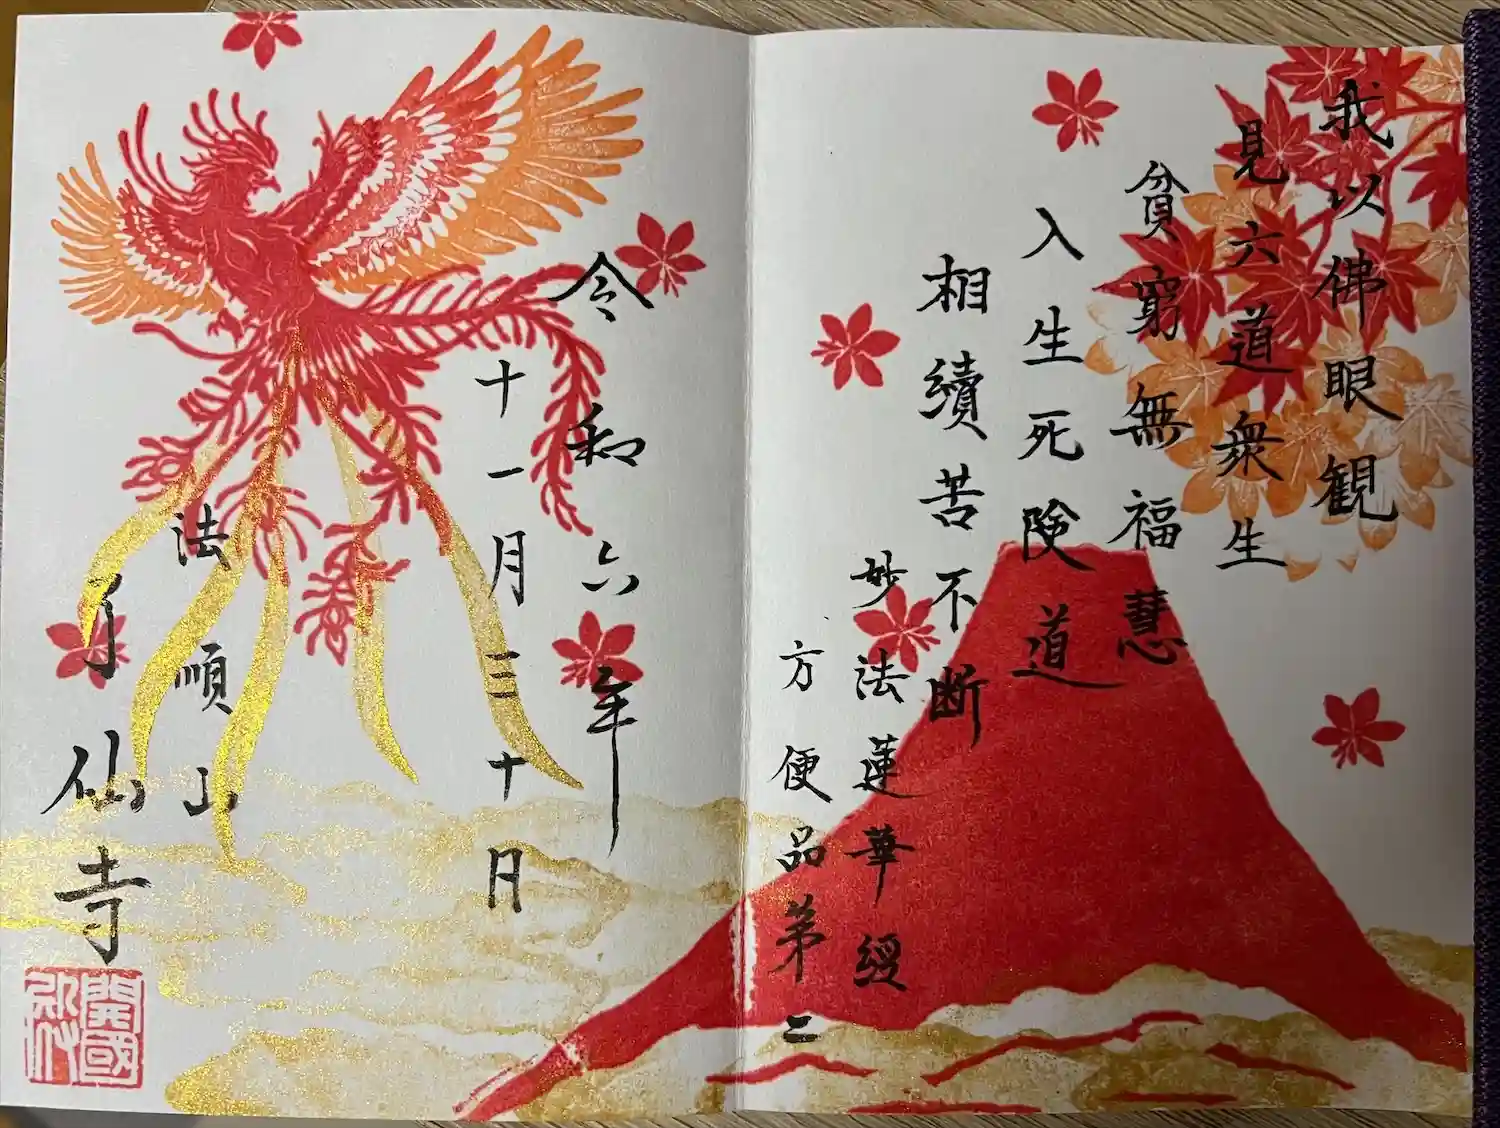 我以佛眼観
見六道衆生
貧窮無福慧
入生死険道
相續苦不断
妙法蓮華経
方便品第二
令和六年
十一月三十日
法順山
了仙寺
開國